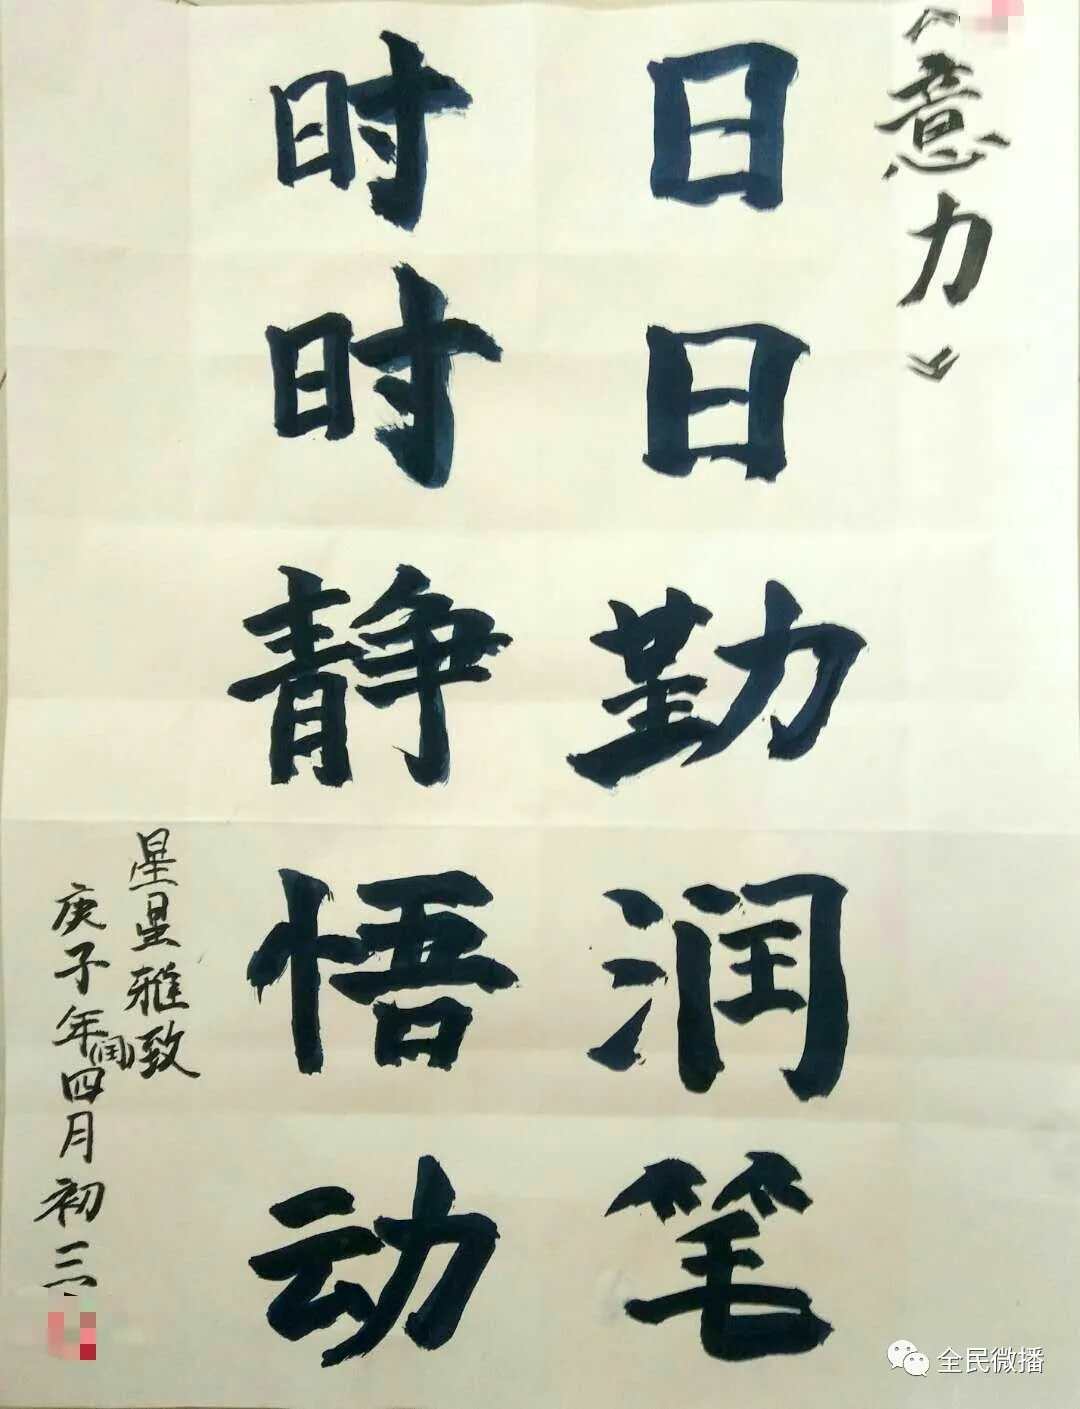 《意力》
日日勤润笔
时时静悟动
星星雅致
庚子年闰四月初三
全民微播